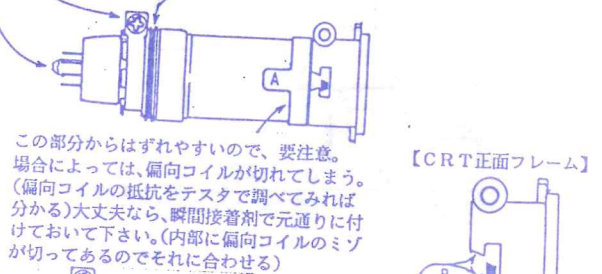 A
この部分からはずれやすいので、要注意。
場合によっては、偏向コイルが切れてしまう。
(偏向コイルの抵抗をテスタで調べてみれば
分かる)大丈夫なら、瞬間接着剤で元通りに付
けておいて下さい。(内部に偏向コイルのミゾ
が切ってあるのでそれに合わせる)
【CRT正面フレーム】